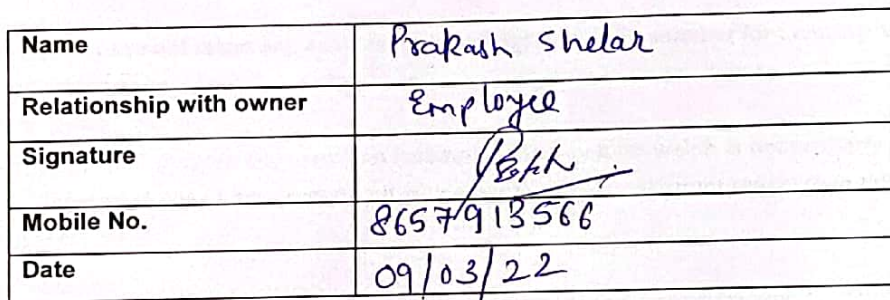 Name Prakash Shelar
Relationship with owner Employee
Signature
Mobile No. 8657913566
Date 09/03/22